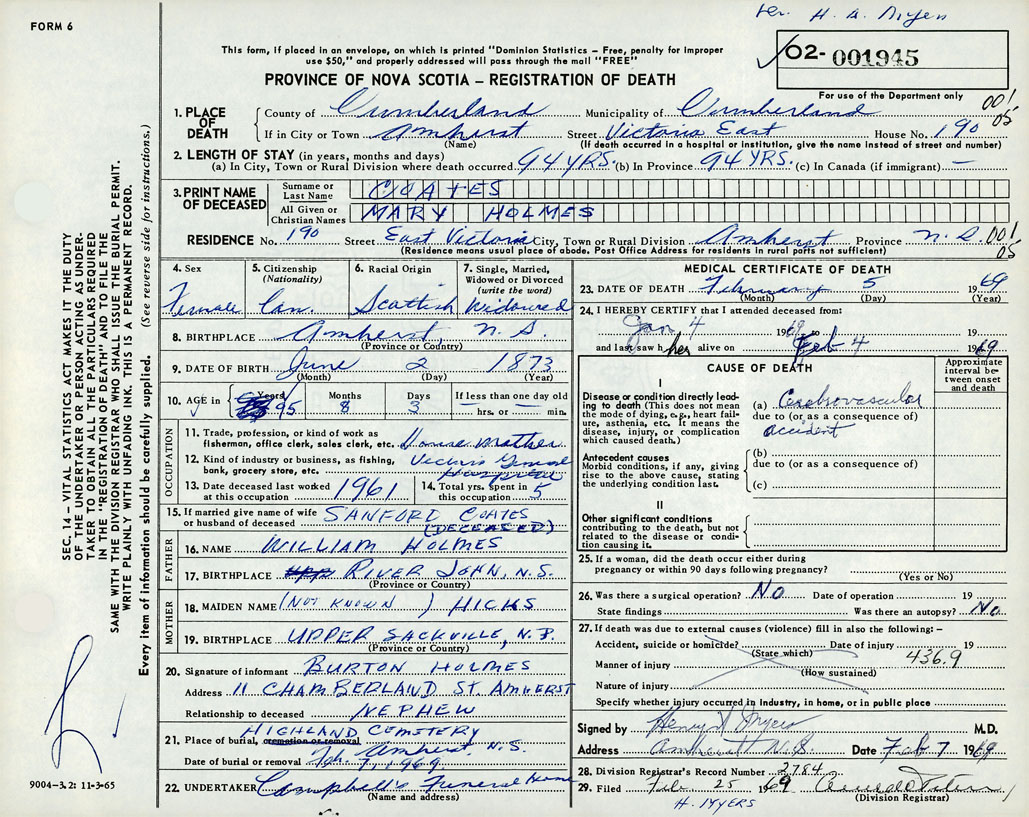 FORM 6
H. A. Myers
This form, if placed in an envelope, on which is printed "Dominion Statistics – Free, penalty for improper
use $50," and properly addressed will pass through the mail "FREE"
O2- 001945
PROVINCE OF NOVA SCOTIA – REGISTRATION OF DEATH
For use of the Department only
001/05
1. PLACE OF DEATH County of Cumberland Municipality of Cumberland
If in City or Town Amherst Street Victoria East House No. 190
(Name) (If death occurred in a hospital or institution, give the name instead of street and number)
2. LENGTH OF STAY (in years, months and days)
(a) In City, Town or Rural Division where death occurred 94 YRS. (b) In Province 94 YRS. (c) In Canada (if immigrant) —
3. PRINT NAME OF DECEASED Surname or Last Name COATES
All Given or Christian Names MARY HOLMES
RESIDENCE No. 190 Street East Victoria City, Town or Rural Division Amherst Province N.S. 001/05
(Residence means usual place of abode. Post Office Address for residents in rural parts not sufficient)
4. Sex 5. Citizenship (Nationality) 6. Racial Origin 7. Single, Married, Widowed or Divorced (write the word)
Female Can. Scottish Widowed
8. BIRTHPLACE Amherst, N.S.
(Province or Country)
9. DATE OF BIRTH June 2 1873
(Month) (Day) (Year)
10. AGE in Years 95 Months 8 Days 3 If less than one day old — hrs. or — min.
OCCUPATION
11. Trade, profession, or kind of work as
fisherman, office clerk, sales clerk, etc. House Mother
12. Kind of industry or business, as fishing,
bank, grocery store, etc. Victoria General Hospital
13. Date deceased last worked at this occupation 1961 14. Total yrs. spent in this occupation 5
15. If married give name of wife or husband of deceased SANFORD COATES
(DECEASED)
FATHER
16. NAME WILLIAM HOLMES
17. BIRTHPLACE RIVER JOHN, N.S.
(Province or Country)
MOTHER
18. MAIDEN NAME (NOT KNOWN) HICKS
19. BIRTHPLACE UPPER SACKVILLE, N.B.
(Province or Country)
20. Signature of informant BURTON HOLMES
Address 11 CHAMBERLAND ST. AMHERST
Relationship to deceased NEPHEW
21. Place of burial, cremation or removal HIGHLAND CEMETERY Amherst N.S.
Date of burial or removal Feb. 7, 1969
22. UNDERTAKER Campbell's Funeral Home
(Name and address)
MEDICAL CERTIFICATE OF DEATH
23. DATE OF DEATH February 5 1969
(Month) (Day) (Year)
24. I HEREBY CERTIFY that I attended deceased from
Jan 4 1969 to 19
and last saw h er alive on Feb 4 1969
CAUSE OF DEATH
Approximate interval between onset and death
I
Disease or condition directly leading
to death (This does not mean
the mode of dying, e.g., heart failure,
asthenia, etc. It means the
disease, injury, or complication
which caused death.)
(a) Cerebrovascular
due to (or as a consequence of)
accident
Antecedent causes
Morbid conditions, if any, giving
rise to the above cause, stating
the underlying condition last.
(b)
due to (or as a consequence of)
(c)
II
Other significant conditions
contributing to the death, but not
related to the disease or condition
causing it.
25. If a woman, did the death occur either during
pregnancy or within 90 days following pregnancy?
(Yes or No)
26. Was there a surgical operation? No Date of operation 19
State findings Was there an autopsy? No
27. If death was due to external causes (violence) fill in also the following: –
Accident, suicide or homicide? Date of injury 19
(State which) 436.9
Manner of injury
(How sustained)
Nature of injury
Specify whether injury occurred in industry, in home, or in public place
Signed by Henry A Myers M.D.
Address Amherst N.S. Date Feb 7 1969
28. Division Registrar's Record Number 3784
29. Filed Feb 25 1969
(Division Registrar)
H. MYERS
SEC. 14 – VITAL STATISTICS ACT MAKES IT THE DUTY
OF THE UNDERTAKER OR PERSON ACTING AS UNDER-
TAKER TO OBTAIN ALL THE PARTICULARS REQUIRED
IN THE "REGISTRATION OF DEATH" AND TO FILE THE
SAME WITH THE DIVISION REGISTRAR WHO SHALL ISSUE THE BURIAL PERMIT.
WRITE PLAINLY WITH UNFADING INK. THIS IS A PERMANENT RECORD.
Every item of information should be carefully supplied. (See reverse side for instructions.)
9004–3.2: 11-3-65